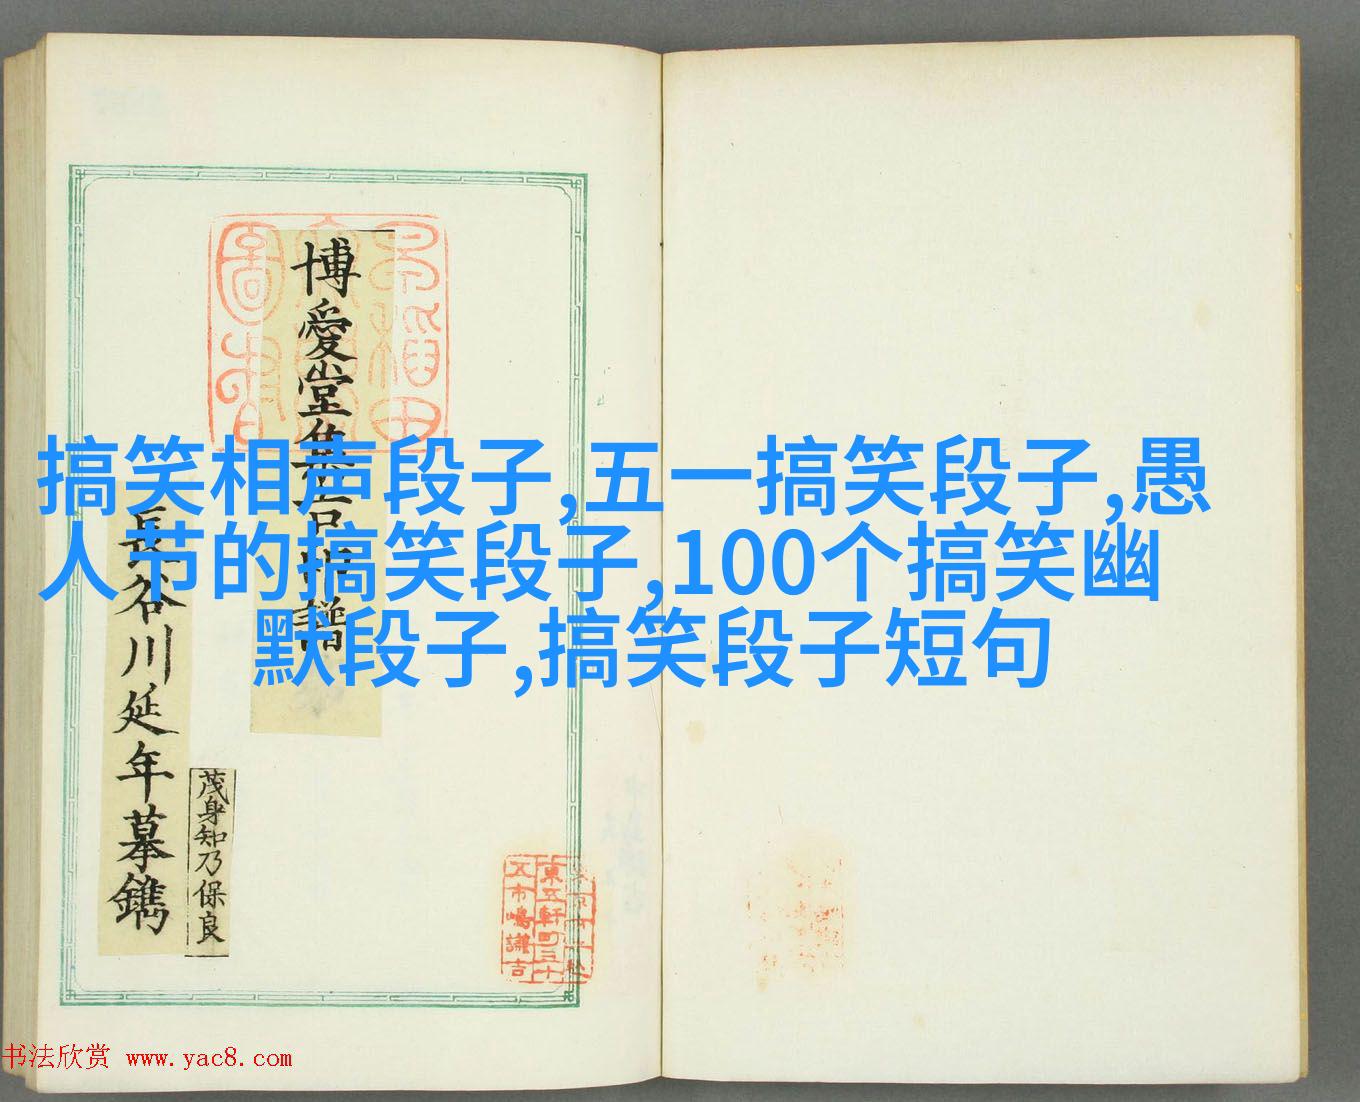 搞笑相声段子,五一搞笑段子,愚
人节的搞笑段子,100个搞笑幽
默段子,搞笑段子短句
博愛堂集古印譜
長谷川延年摹鐫
茂身知乃保良
東五軒町三十
五市嶋謙吉
书法欣赏 www.yac8.com